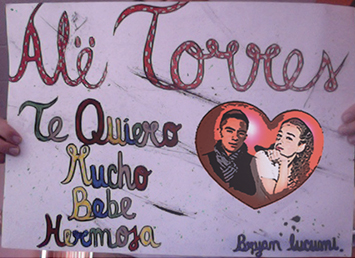 Alë Torres
Te Quiero
Mucho
Bebe
Hermosa
Bryan lucumi.